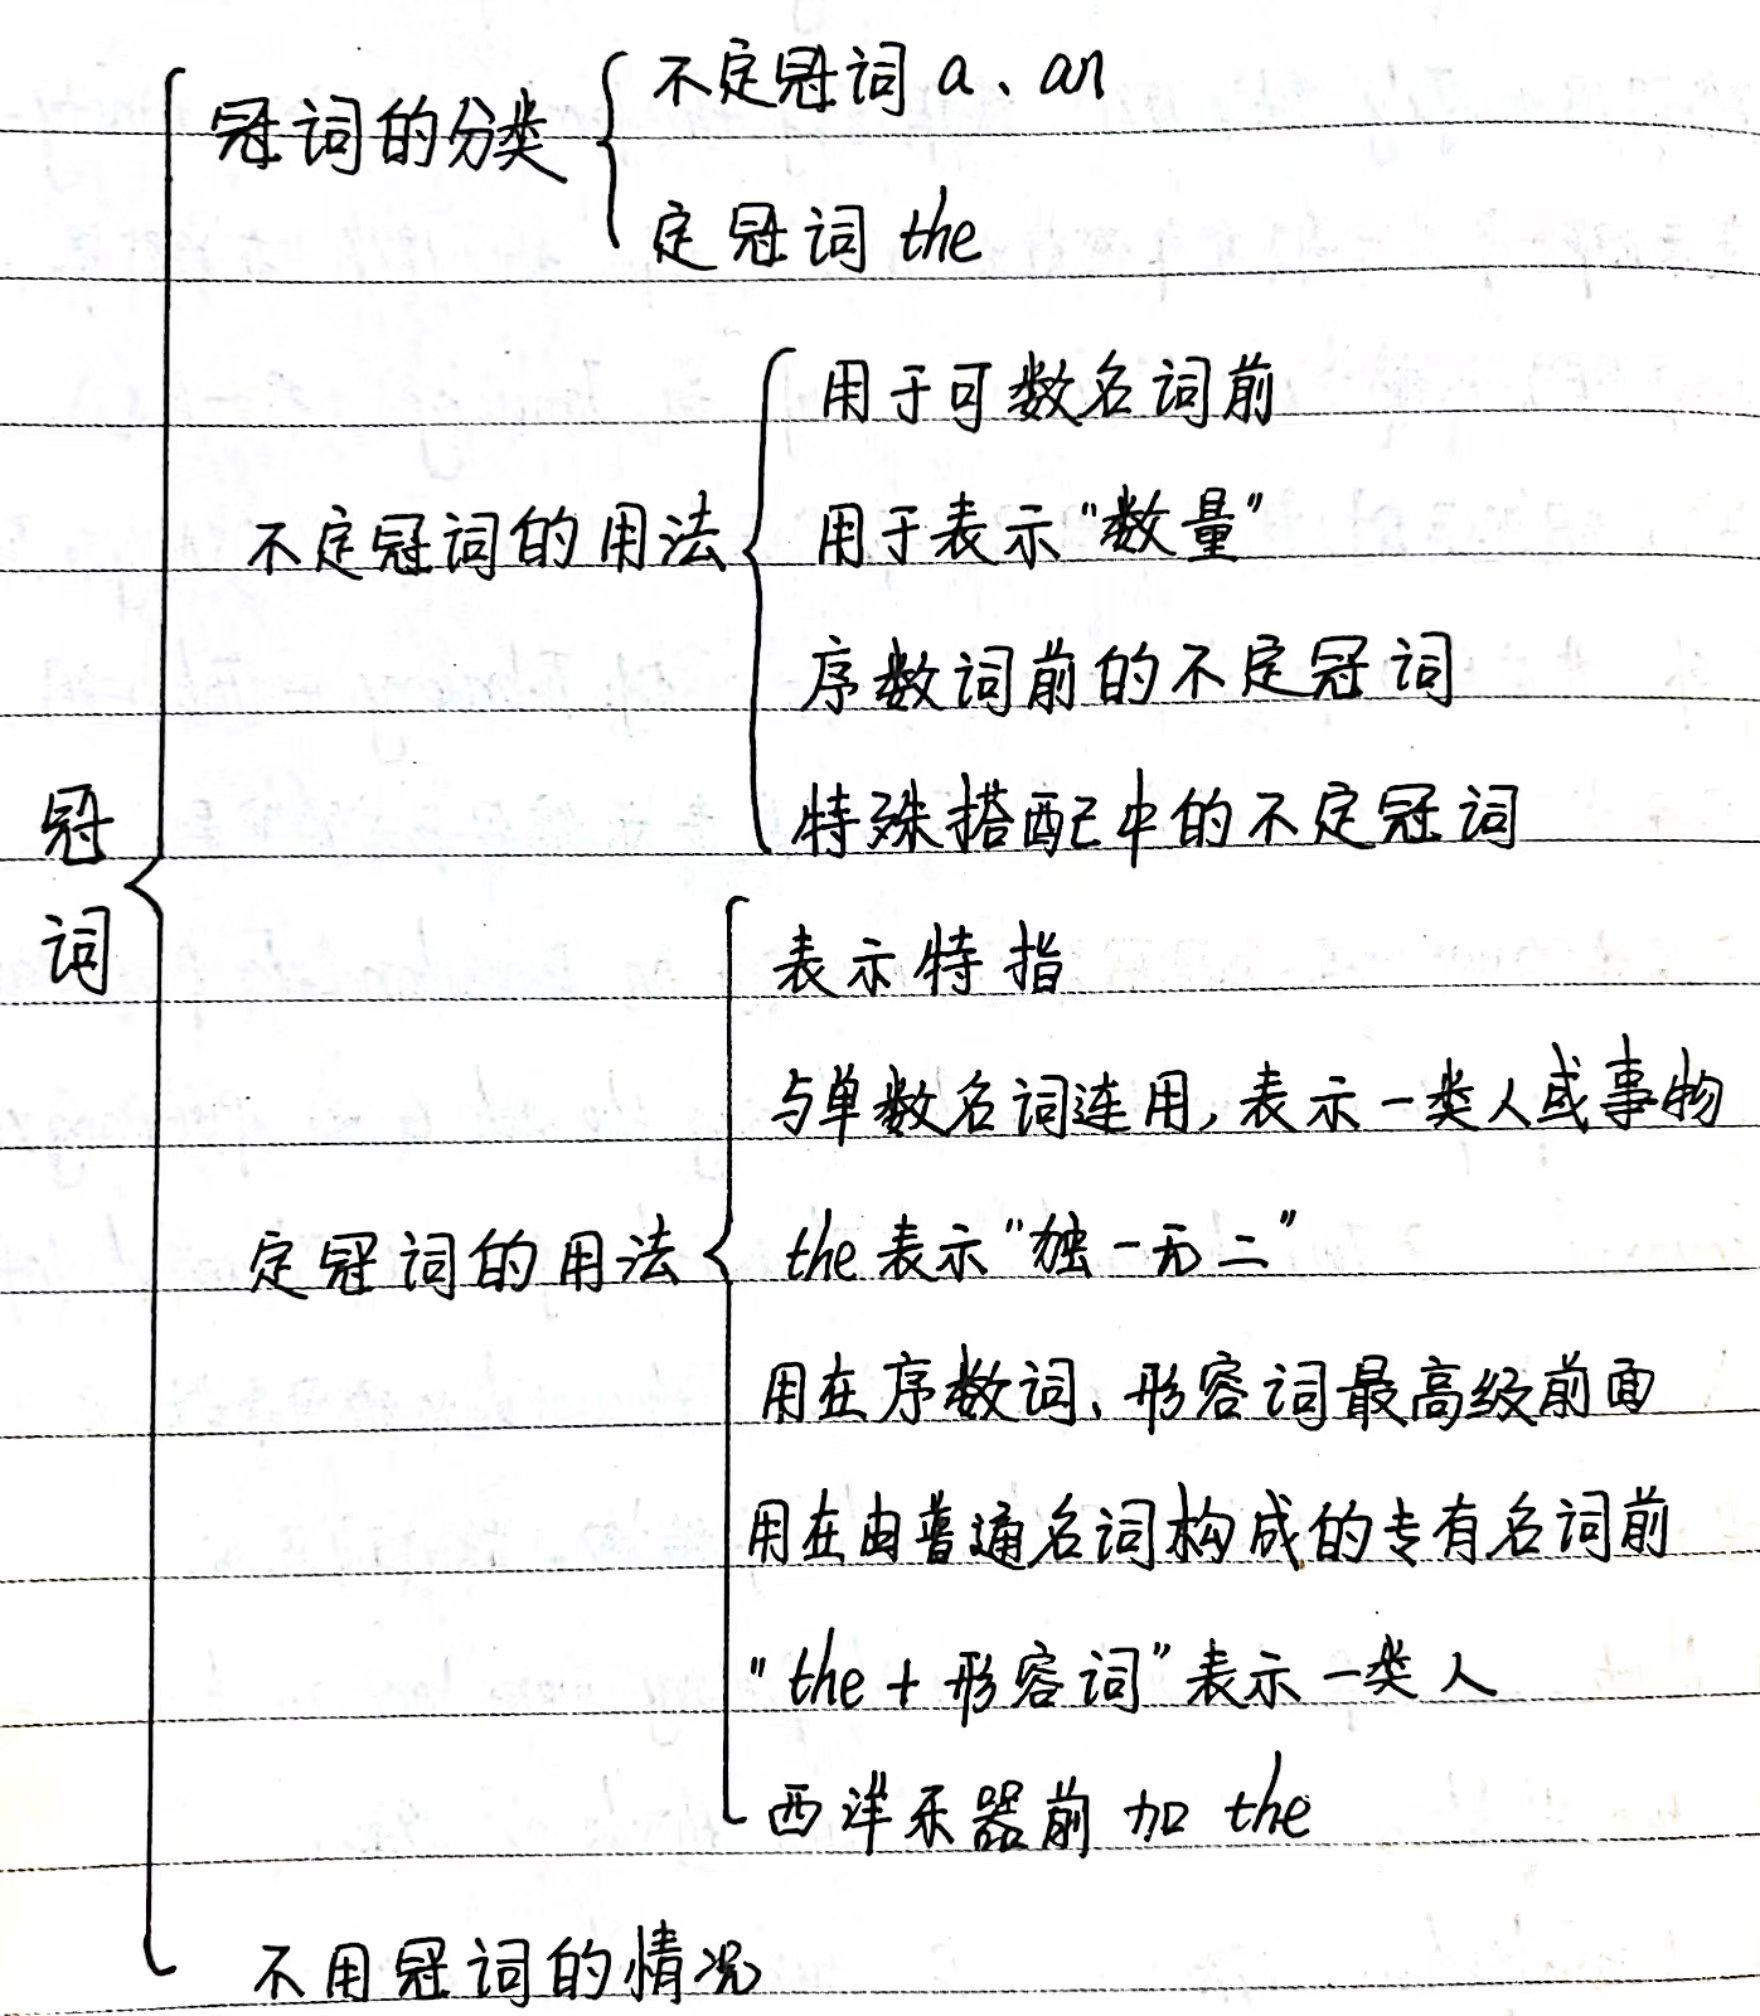 冠词
冠词的分类
不定冠词 a、an
定冠词 the
不定冠词的用法
用于可数名词前
用于表示"数量"
序数词前的不定冠词
特殊搭配中的不定冠词
定冠词的用法
表示特指
与单数名词连用,表示一类人或事物
the 表示"独一无二"
用在序数词、形容词最高级前面
用在由普通名词构成的专有名词前
"the + 形容词"表示一类人
西洋乐器前加 the
不用冠词的情况